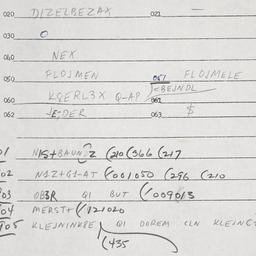 020 DIZELBEZAX 021 —
030 O
040 NEX
050 FLOJMEN 051 FLOJMELE
060 KQERL3X Q-AP <BEJNDL 061
062 JE;DER 063 $
01 NIS+BAUN2Z (210 (366 (217
02 N1Z+G1-AT (001050 (296 (210
03 OB3R Q1 BUT (009013
04 MERST+ (121020
05 KLEJNINKBE Q1 DOREM CLN KLEINGT
(435